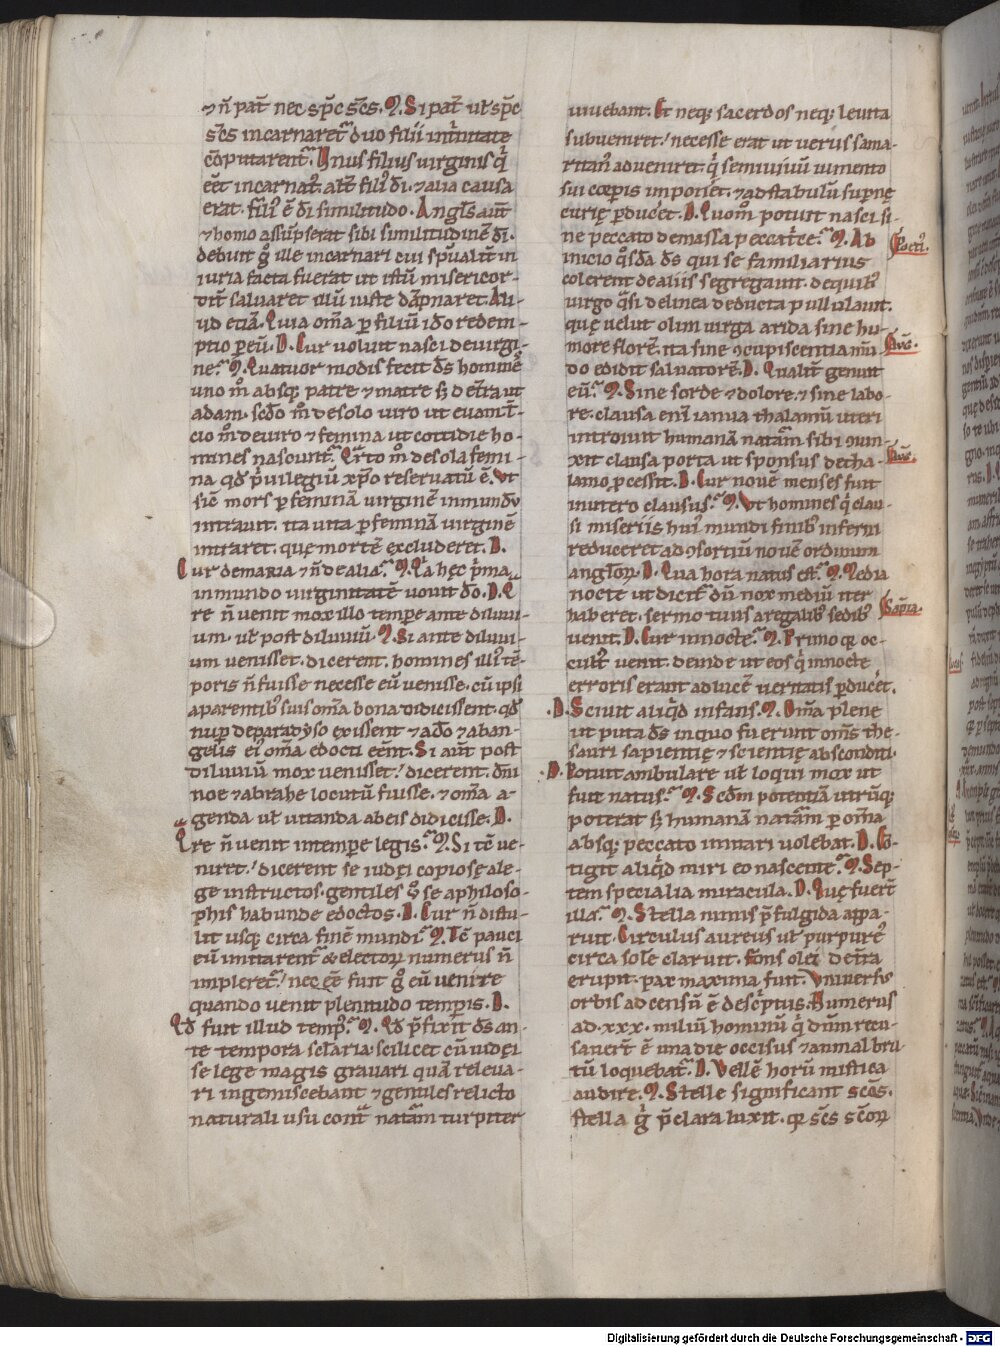 ⁊ n̄ pat̄ nec sp̄c sc̄s. M. Si pat̄ ul̓ sp̄c
sc̄s incarnaret᷑ duo filii int̓nitate
cōputarent᷑. Unus filius uirginis q̇
eēt incarnat᷒. alt̄ fili᷒ d̄i. ⁊ alia causa
erat. fili᷒ ē d̄i similitudo. Angl̄s aut̄
⁊ homo assūpserat sibi similitudinē d̄i.
debuit g̊ ille incarnari cui sp̄ualit̄ in
iuria facta fuerat ut istū misericor-
dit̄ saluaret illū iuste dāpnaret. Ali-
ud etiā. Quia om̄a p filiū iđo redem-
ptio p eū. D. Cur uoluit nasci de uirgi-
ne. M. Quatuor modis fecit d̄s hominē
uno m̊ absq; patre ⁊ matre s; de t̄ra ut
adam. sc̄do m̊ de solo uiro ut euam t̄-
cio m̊ de uiro ⁊ femina ut cottidie ho-
mines nascunt᷑. Q̈rto m̊ de sola femi-
na qđ p̓uilegiū xp̄o reseruatū ē. Vt
sic̄ mors p feminā uirginē in mundū
intrauit. ita uita p feminā uirginē
intraret. quę mortē excluderet. D.
Cur de maria ⁊ n̄ de alia. M. Q̈a hęc p̓ma
in mundo uirginitatē uouit đo. D. Q̈
re n̄ uenit mox illo tempore ante diluui-
um. ul̓ post diluuiū. M. Si ante diluui-
um uenisset. dicerent. homines illi᷒ tē-
poris n̄ fuisse necesse eū uenisse. cū ipsi
a parentib᷒ suis om̄a bona didicissent. qđ
nup de paradyso exissent ⁊ a đo ⁊ ab an-
gelis ei᷒ om̄a edocti eēnt. Si aut̄ post
diluuiū mox uenisset. dicerent. dn̄i
noe ⁊ abrahę locutū fuisse. ⁊ om̄a a-
genda ul̓ uitanda ab eis didicisse. D.
Q̈re n̄ uenit in tempore legis. M. Si tē ue-
niret. dicerent se iudei copiose a le-
ge instructos. gentiles ů se a philoso-
phis habunde edoctos. D. Cur n̄ distu-
lit usq; circa finē mundi. M. Tē pauci
eū imitarent᷑ ⁊ electorꝝ numerus n̄
impleret᷑. nec eē fuit g̊ eū uenire
quando uenit plenitudo temporis. D.
Qđ fuit illud temp᷒. M. Qđ p̄fixit d̄s an-
te tempora scl̄aria. scilicet cū iudei
se lege magis grauari quā releua-
ri ingemiscebant ⁊ gentiles relicto
naturali usu cont̄ natām turpiter
uiuebant. Et neq; sacerdos neq; leuita
subueniret. necesse erat ut uerus sama-
ritan᷒ adueniret. q̇ semiuiuū iumento
sui corporis imponēt. ⁊ ad stabulū sup̄nę
curię p̄ducēt. D. Quom̊ potuit nasci si-
ne peccato de massa peccatc̄e. M. Ab
inicio q̊sda d̄s qui se familiarius
colerent de aliis segregauit. de quib᷒
uirgo q̄si de linea deducta pullulauit.
quę uelut olim uirga arida sine hu-
more florēt. ita sine ꝯcupiscentia mū-
do edidit saluatorē. D. Qualit̄ genuit
eū. M. Sine sorde ⁊ dolore. ⁊ sine labo-
re. clausa eni ianua thalamū uteri
introiuit humanā natām sibi ꝯiun-
xit clausa porta ut sponsus de tha-
lamo p̄cessit. D. Cur nouē menses fuit
in utero clausus. M. Vt homines q̇ clau-
si miseriis hui᷒ mundi finib᷒ inferni
reduceret ad ꝯsortiū nouē ordinum
anglorꝝ. D. Qua hora natus est. M. Media
nocte ut dicit᷑ dū nox mediū iter
haberet. sermo tuus a regalib᷒ sedib᷒
uenit. D. Cur in nocte. M. Primo q̨ oc-
cult̄ uenit. deinde ut eos q̇ in nocte
erroris erant ad lucē ueritatis p̄ducēt.
D. Sciuit aliq̇d infans. M. Om̄a plene
ut puta d̄s in quo fuerunt om̄s the-
sauri sapientię ⁊ scientię absconditi.
D. Potuit ambulare ul̓ loqui mox ut
fuit natus. M. Scđm potentiā utrūq;
poterat s; humanā natām p om̄a
absq; peccato imitari uolebat. D. Cō-
tigit aliq̇d miri eo nascente. M. Sep-
tem specialia miracula. D. Quę fuer̄t
illa. M. Stella nimis p̄fulgida appa-
ruit. Circulus aureus ul̓ purpure᷒
circa sole claruit. fons olei de t̄ra
erupit. pax maxima fuit. Vniuersus
orbis ad censū ē desc̓ptus. Numerus
ad. xxx. miliū hominū q̇ dn̄m recu-
sauer̄t ē una die occisus ⁊ animal bru-
tū loquebat᷑. D. Vellē horū mistica
audire. M. Stelle significant sc̄os.
stella g̊ p̄clara luxit. q̨ sc̄s sc̄orꝝ
Poeti᷒.
Aug.
Aug.
Sapīa.
Digitalisierung gefördert durch die Deutsche Forschungsgemeinschaft - DFG